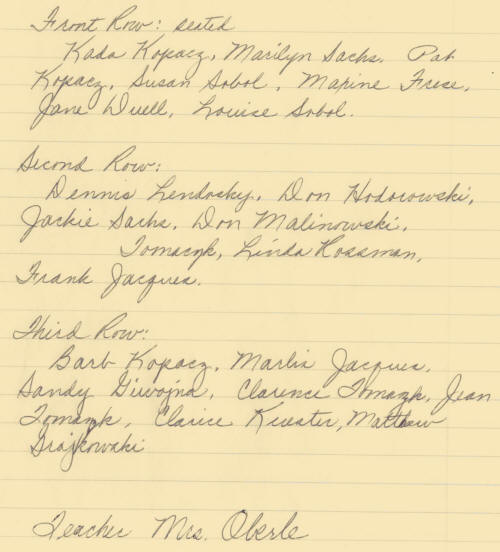 Front Row: seated
Kada Kopacz, Marilyn Sachs, Pat
Kopacz, Susan Sobol, Maxine Frese,
Jane Duell, Louise Sobol.
Second Row:
Dennis Lendosky, Don Hodorowski,
Jackie Sachs, Don Malinowski,
Tomazyk, Linda Rossman,
Frank Jacques.
Third Row:
Barb Kopacz, Marlis Jacques,
Sandy Giwojna, Clarence Tomazyk, Jean
Tomazyk, Clarice Matthew
Grajkowski
Teacher Mrs. Oberle